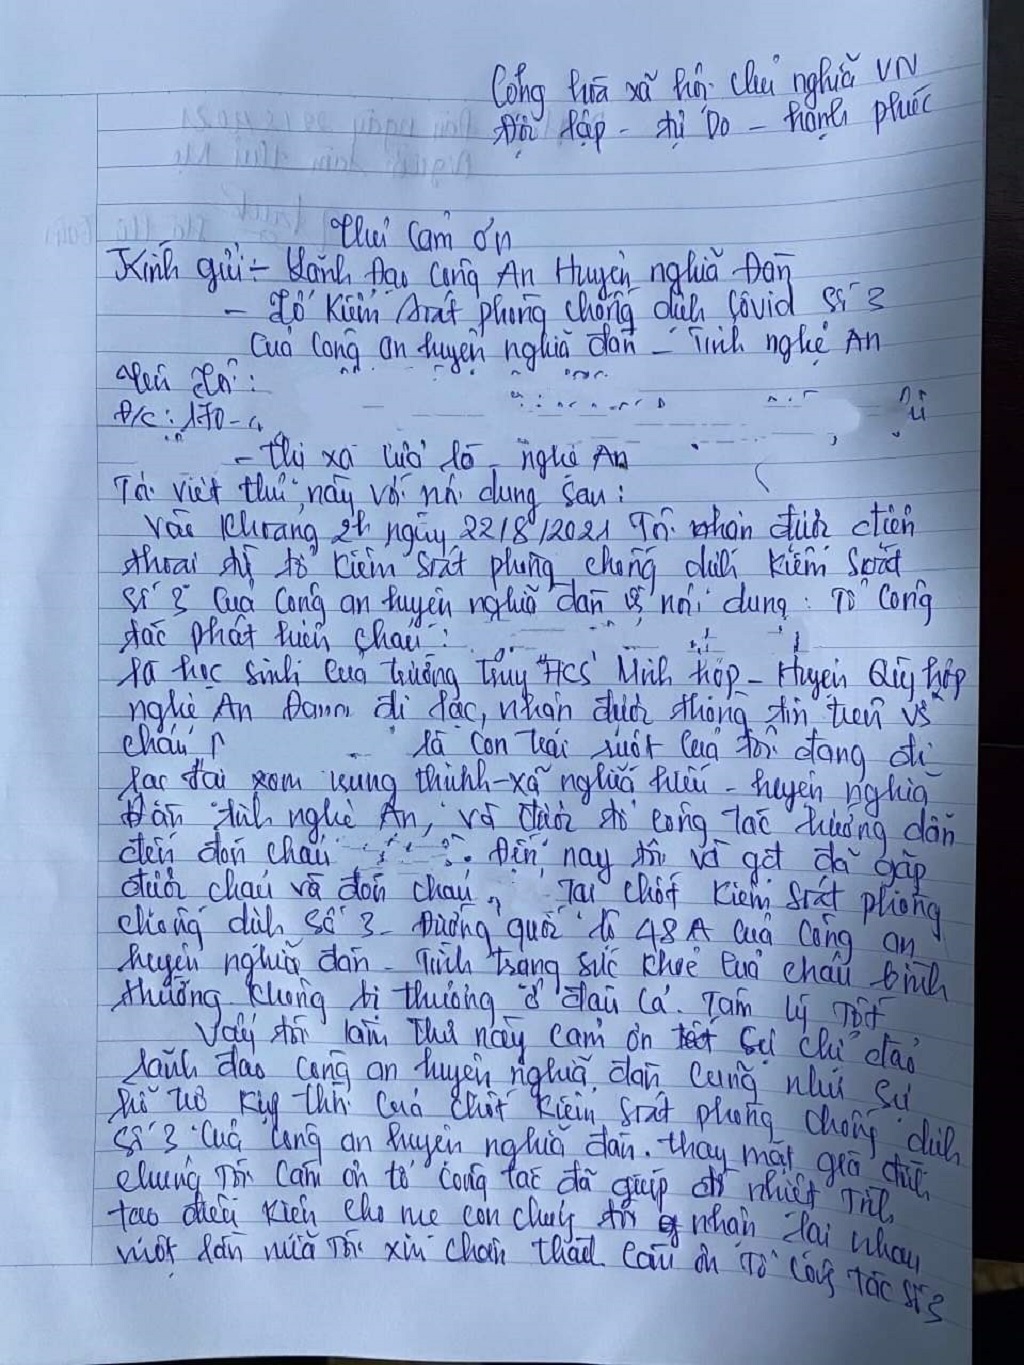 Cộng hòa xã hội chủ nghĩa VN
Độc lập - tự Do - hạnh phúc
Thư cảm ơn
Kính gửi - Lãnh Đạo Công An Huyện nghĩa Đàn
- Tổ Kiểm soát phòng chống dịch Covid số 3
Của Công an huyện nghĩa đàn - Tỉnh nghệ An
Tên tôi:
Đ/c: 170 -
- thị xã cửa lò - nghệ An
Tôi viết thư này với nội dung sau:
Vào khoảng 2h ngày 22/8/2021 Tôi nhận được điện
thoại từ tổ kiểm soát phòng chống dịch kiểm soát
số 3 của Công an huyện nghĩa đàn nội dung: Tổ Công
tác phát hiện cháu:
là học sinh của trường THCS Minh hợp - Huyện Quỳ hợp
nghệ An Đang đi lạc, nhận được thông tin trên về
cháu là con trai ruột của tôi đang đi
lạc tại xóm trung thịnh - xã nghĩa hiếu - huyện nghĩa
Đàn tỉnh nghệ An, và được tổ công tác hướng dẫn
đến đón cháu. Đến nay tôi và gđ đã gặp
được cháu và đón cháu, Tại chốt kiểm soát phòng
chống dịch số 3 - Đường quốc lộ 48A của Công an
huyện nghĩa đàn - Tình trạng sức khoẻ của cháu bình
thường không bị thương ở đâu cả. Tâm lý Tốt
Vậy tôi làm thư này cảm ơn sự chỉ đạo
lãnh đạo công an huyện nghĩa đàn cũng như sự
hỗ trợ kịp thời của chốt kiểm soát phòng chống dịch
số 3 của công an huyện nghĩa đàn. thay mặt gia đình
chúng Tôi Cảm ơn tổ công tác đã giúp đỡ nhiệt Tình,
tạo điều kiện cho mẹ con chúng tôi nhận lại nhau
một lần nữa Tôi xin chân thành cảm ơn Tổ Công tác số 3